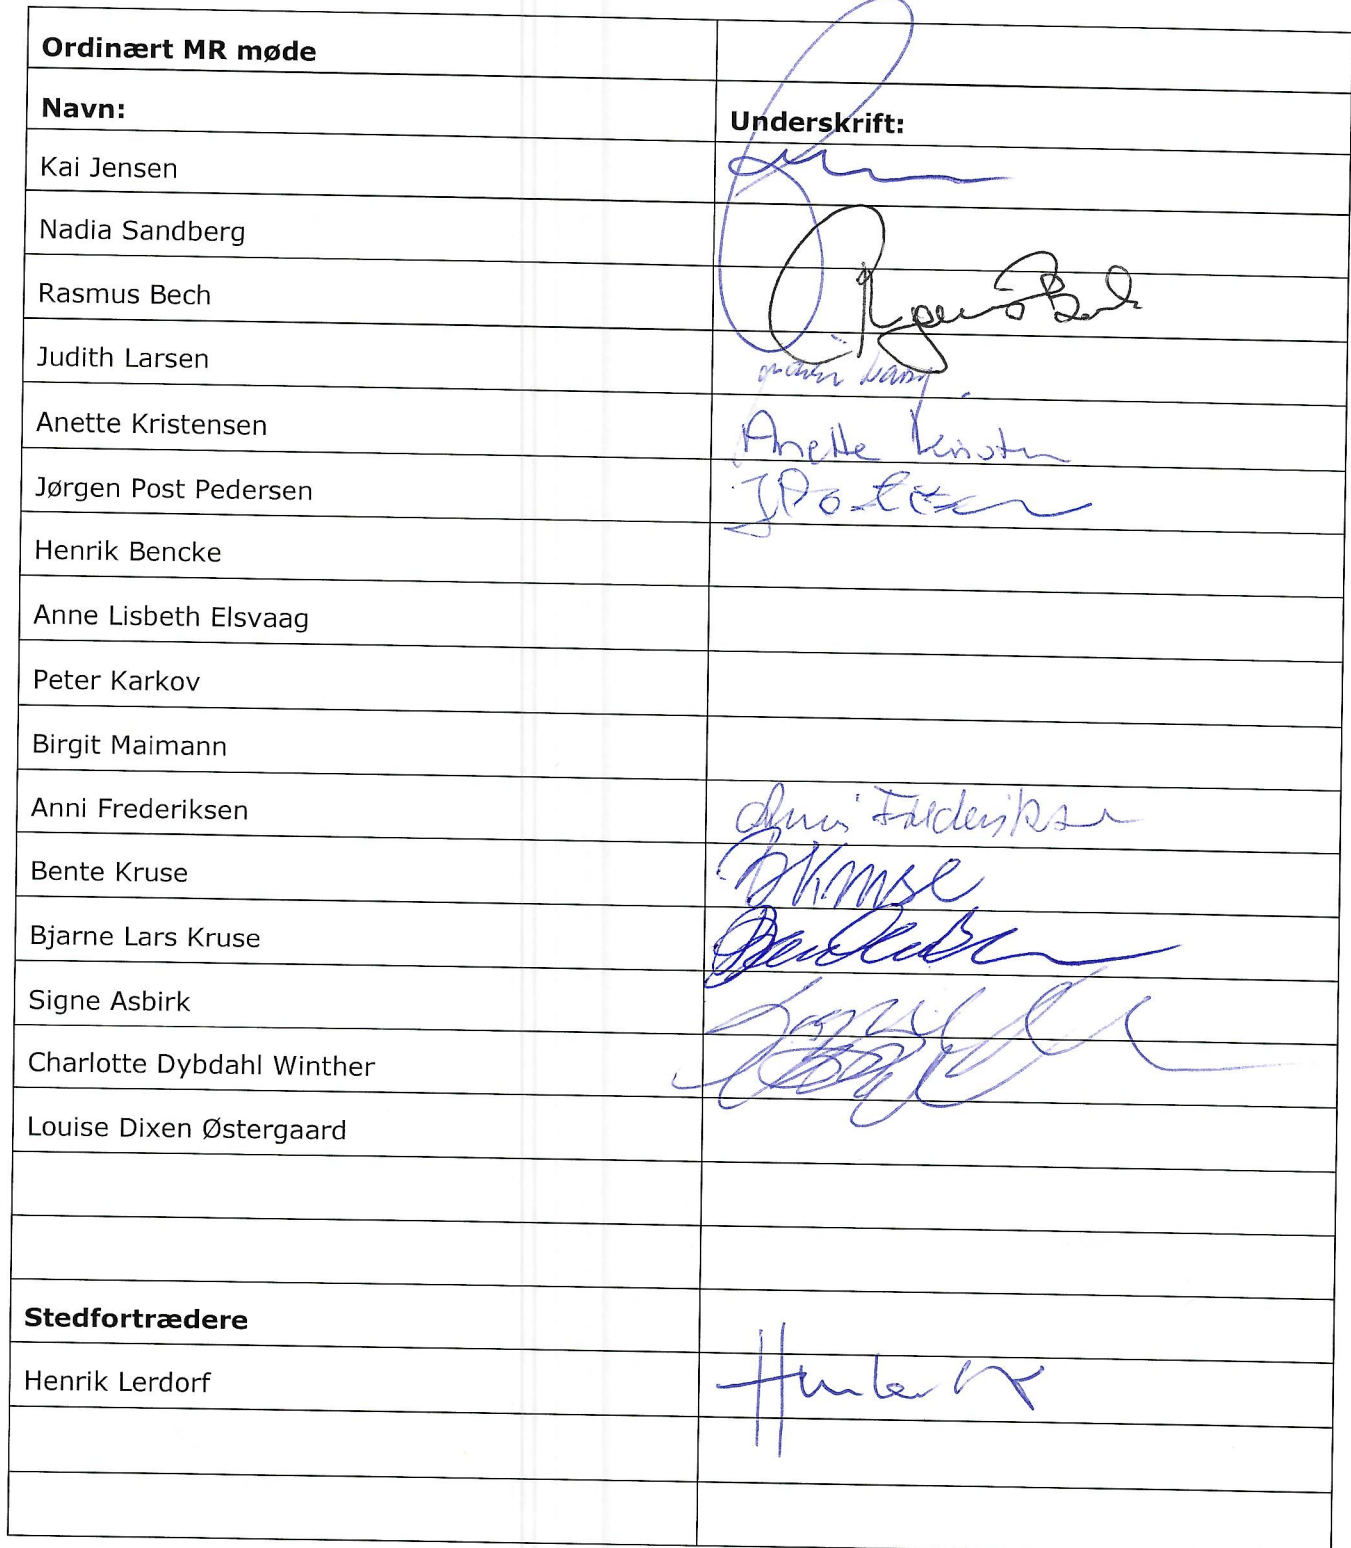 Ordinært MR møde
Navn: Underskrift:
Kai Jensen
Nadia Sandberg
Rasmus Bech
Judith Larsen
Anette Kristensen Anette
Jørgen Post Pedersen
Henrik Bencke
Anne Lisbeth Elsvaag
Peter Karkov
Birgit Maimann
Anni Frederiksen Anni Frederiksen
Bente Kruse BKruse
Bjarne Lars Kruse
Signe Asbirk
Charlotte Dybdahl Winther
Louise Dixen Østergaard
Stedfortrædere
Henrik Lerdorf